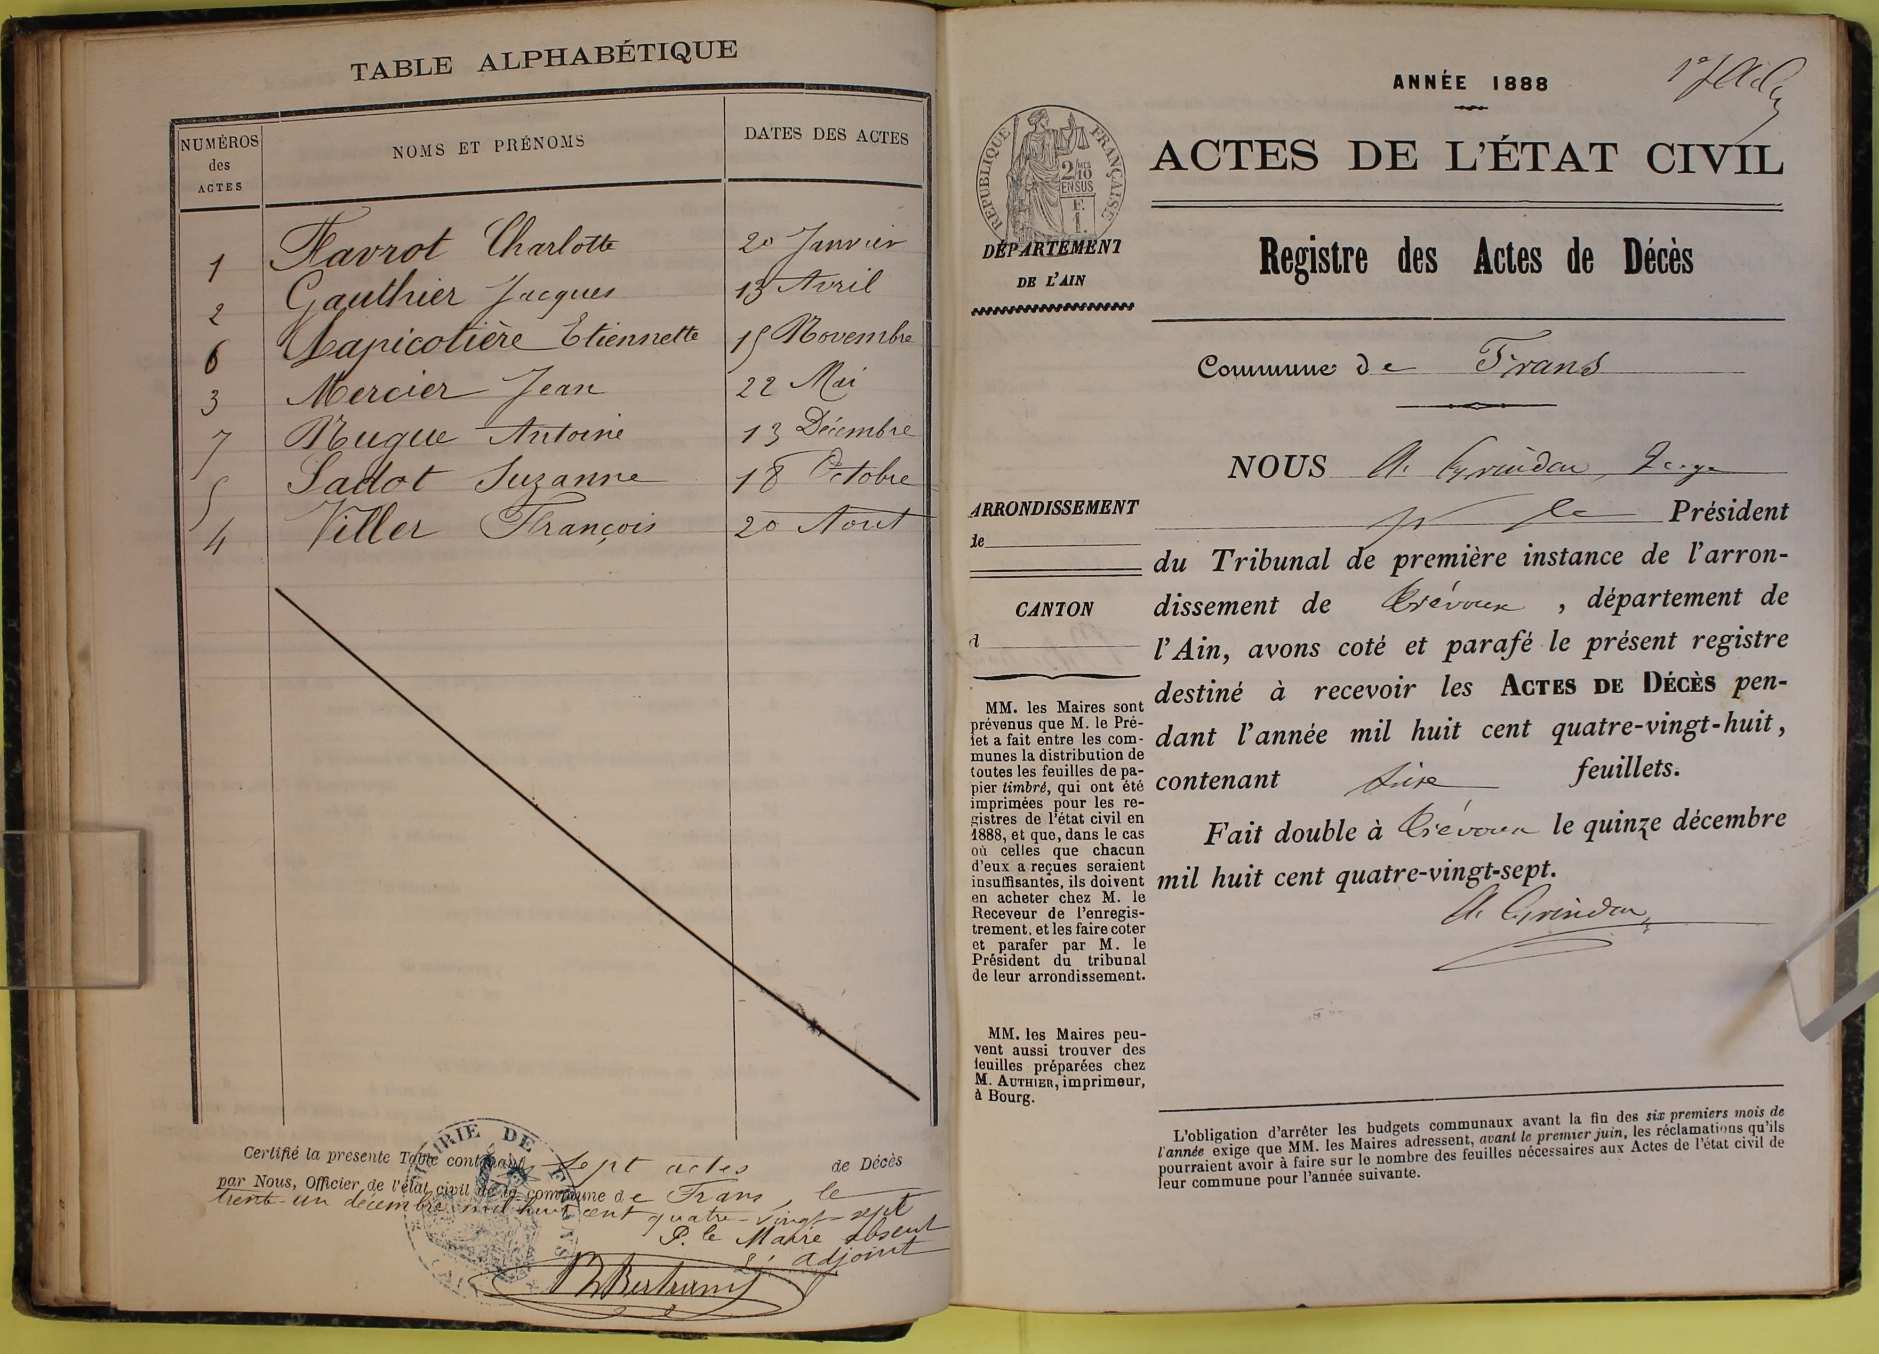 TABLE ALPHABÉTIQUE
NUMÉROS
des
ACTES
NOMS ET PRÉNOMS
DATES DES ACTES
1 Favrot Charlotte 20 Janvier
2 Gauthier Jacques 13 Avril
6 Lapicotière Etiennette 15 Novembre
3 Mercier Jean 22 Mai
7 Nugue Antoine 13 Décembre
5 Sadot Suzanne 18 Octobre
4 Viller François 20 Aout
Certifié la présente Table contenant sept actes de Décès
par Nous, Officier de l'état civil de la commune de Frans, le
trente-un décembre mil huit cent quatre-vingt-sept
P. le Maire absent
L' adjoint
Bertrand
MAIRIE DE FRANS
(AIN)
1er
ANNÉE 1888
ACTES DE L'ÉTAT CIVIL
RÉPUBLIQUE FRANÇAISE
2/10
EN SUS
F.
1.
DÉPARTEMENT
DE L'AIN
Registre des Actes de Décès
Commune de Frans
NOUS A. Grindon, Juge
Président
ARRONDISSEMENT
de
du Tribunal de première instance de l'arron-
dissement de Trévoux, département de
l'Ain, avons coté et parafé le présent registre
destiné à recevoir les ACTES DE DÉCÈS pen-
dant l'année mil huit cent quatre-vingt-huit,
contenant six feuillets.
Fait double à Trévoux le quinze décembre
mil huit cent quatre-vingt-sept.
A. Grindon
CANTON
d
MM. les Maires sont
prévenus que M. le Pré-
fet a fait entre les com-
munes la distribution de
toutes les feuilles de pa-
pier timbré, qui ont été
imprimées pour les re-
gistres de l'état civil en
1888, et que, dans le cas
où celles que chacun
d'eux a reçues seraient
insuffisantes, ils doivent
en acheter chez M. le
Receveur de l'enregis-
trement, et les faire coter
et parafer par M. le
Président du tribunal
de leur arrondissement.
MM. les Maires peu-
vent aussi trouver des
feuilles préparées chez
M. AUTHIER, imprimeur,
à Bourg.
L'obligation d'arrêter les budgets communaux avant la fin des six premiers mois de
l'année exige que MM. les Maires adressent, avant le premier juin, les réclamations qu'ils
pourraient avoir à faire sur le nombre des feuilles nécessaires aux Actes de l'état civil de
leur commune pour l'année suivante.